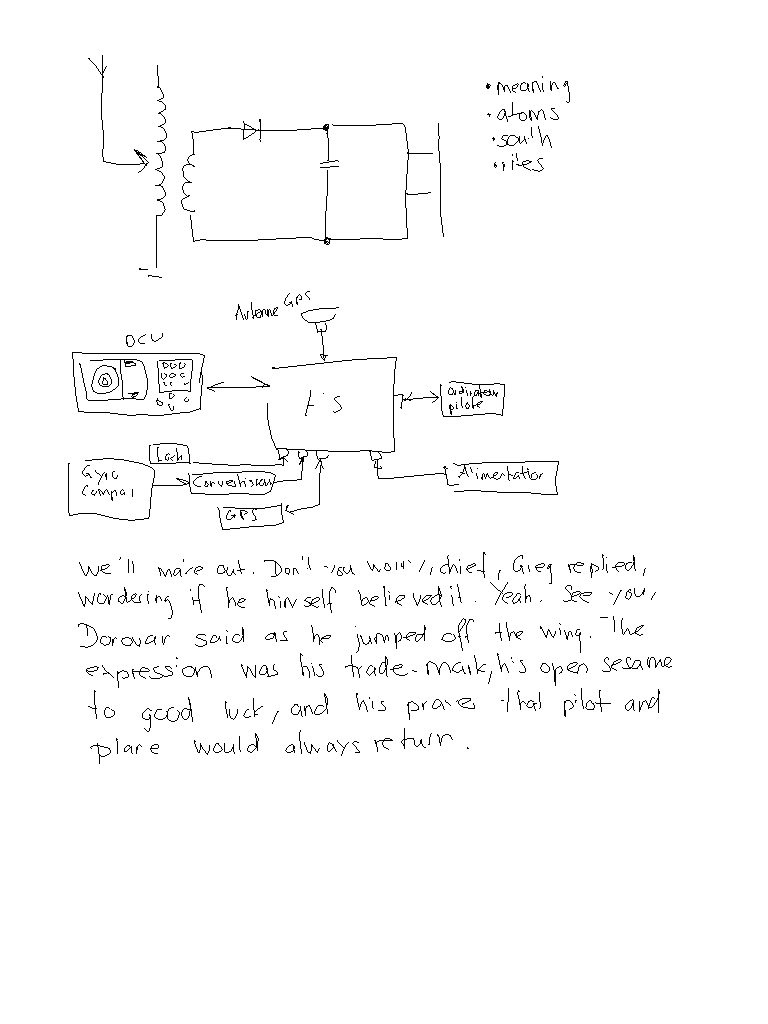 • meaning
• atoms
• south
• rites
Antenne GPS
DCU
Ordinateur
pilote
Loch
Gyro
Compas
Alimentation
GPS
We'll make out. Don't you worry, chief, Greg replied,
wondering if he himself believed it. Yeah. See you,
Donovan said as he jumped off the wing. The
expression was his trade-mark, his open sesame
to good luck, and his prayer that pilot and
plane would always return.